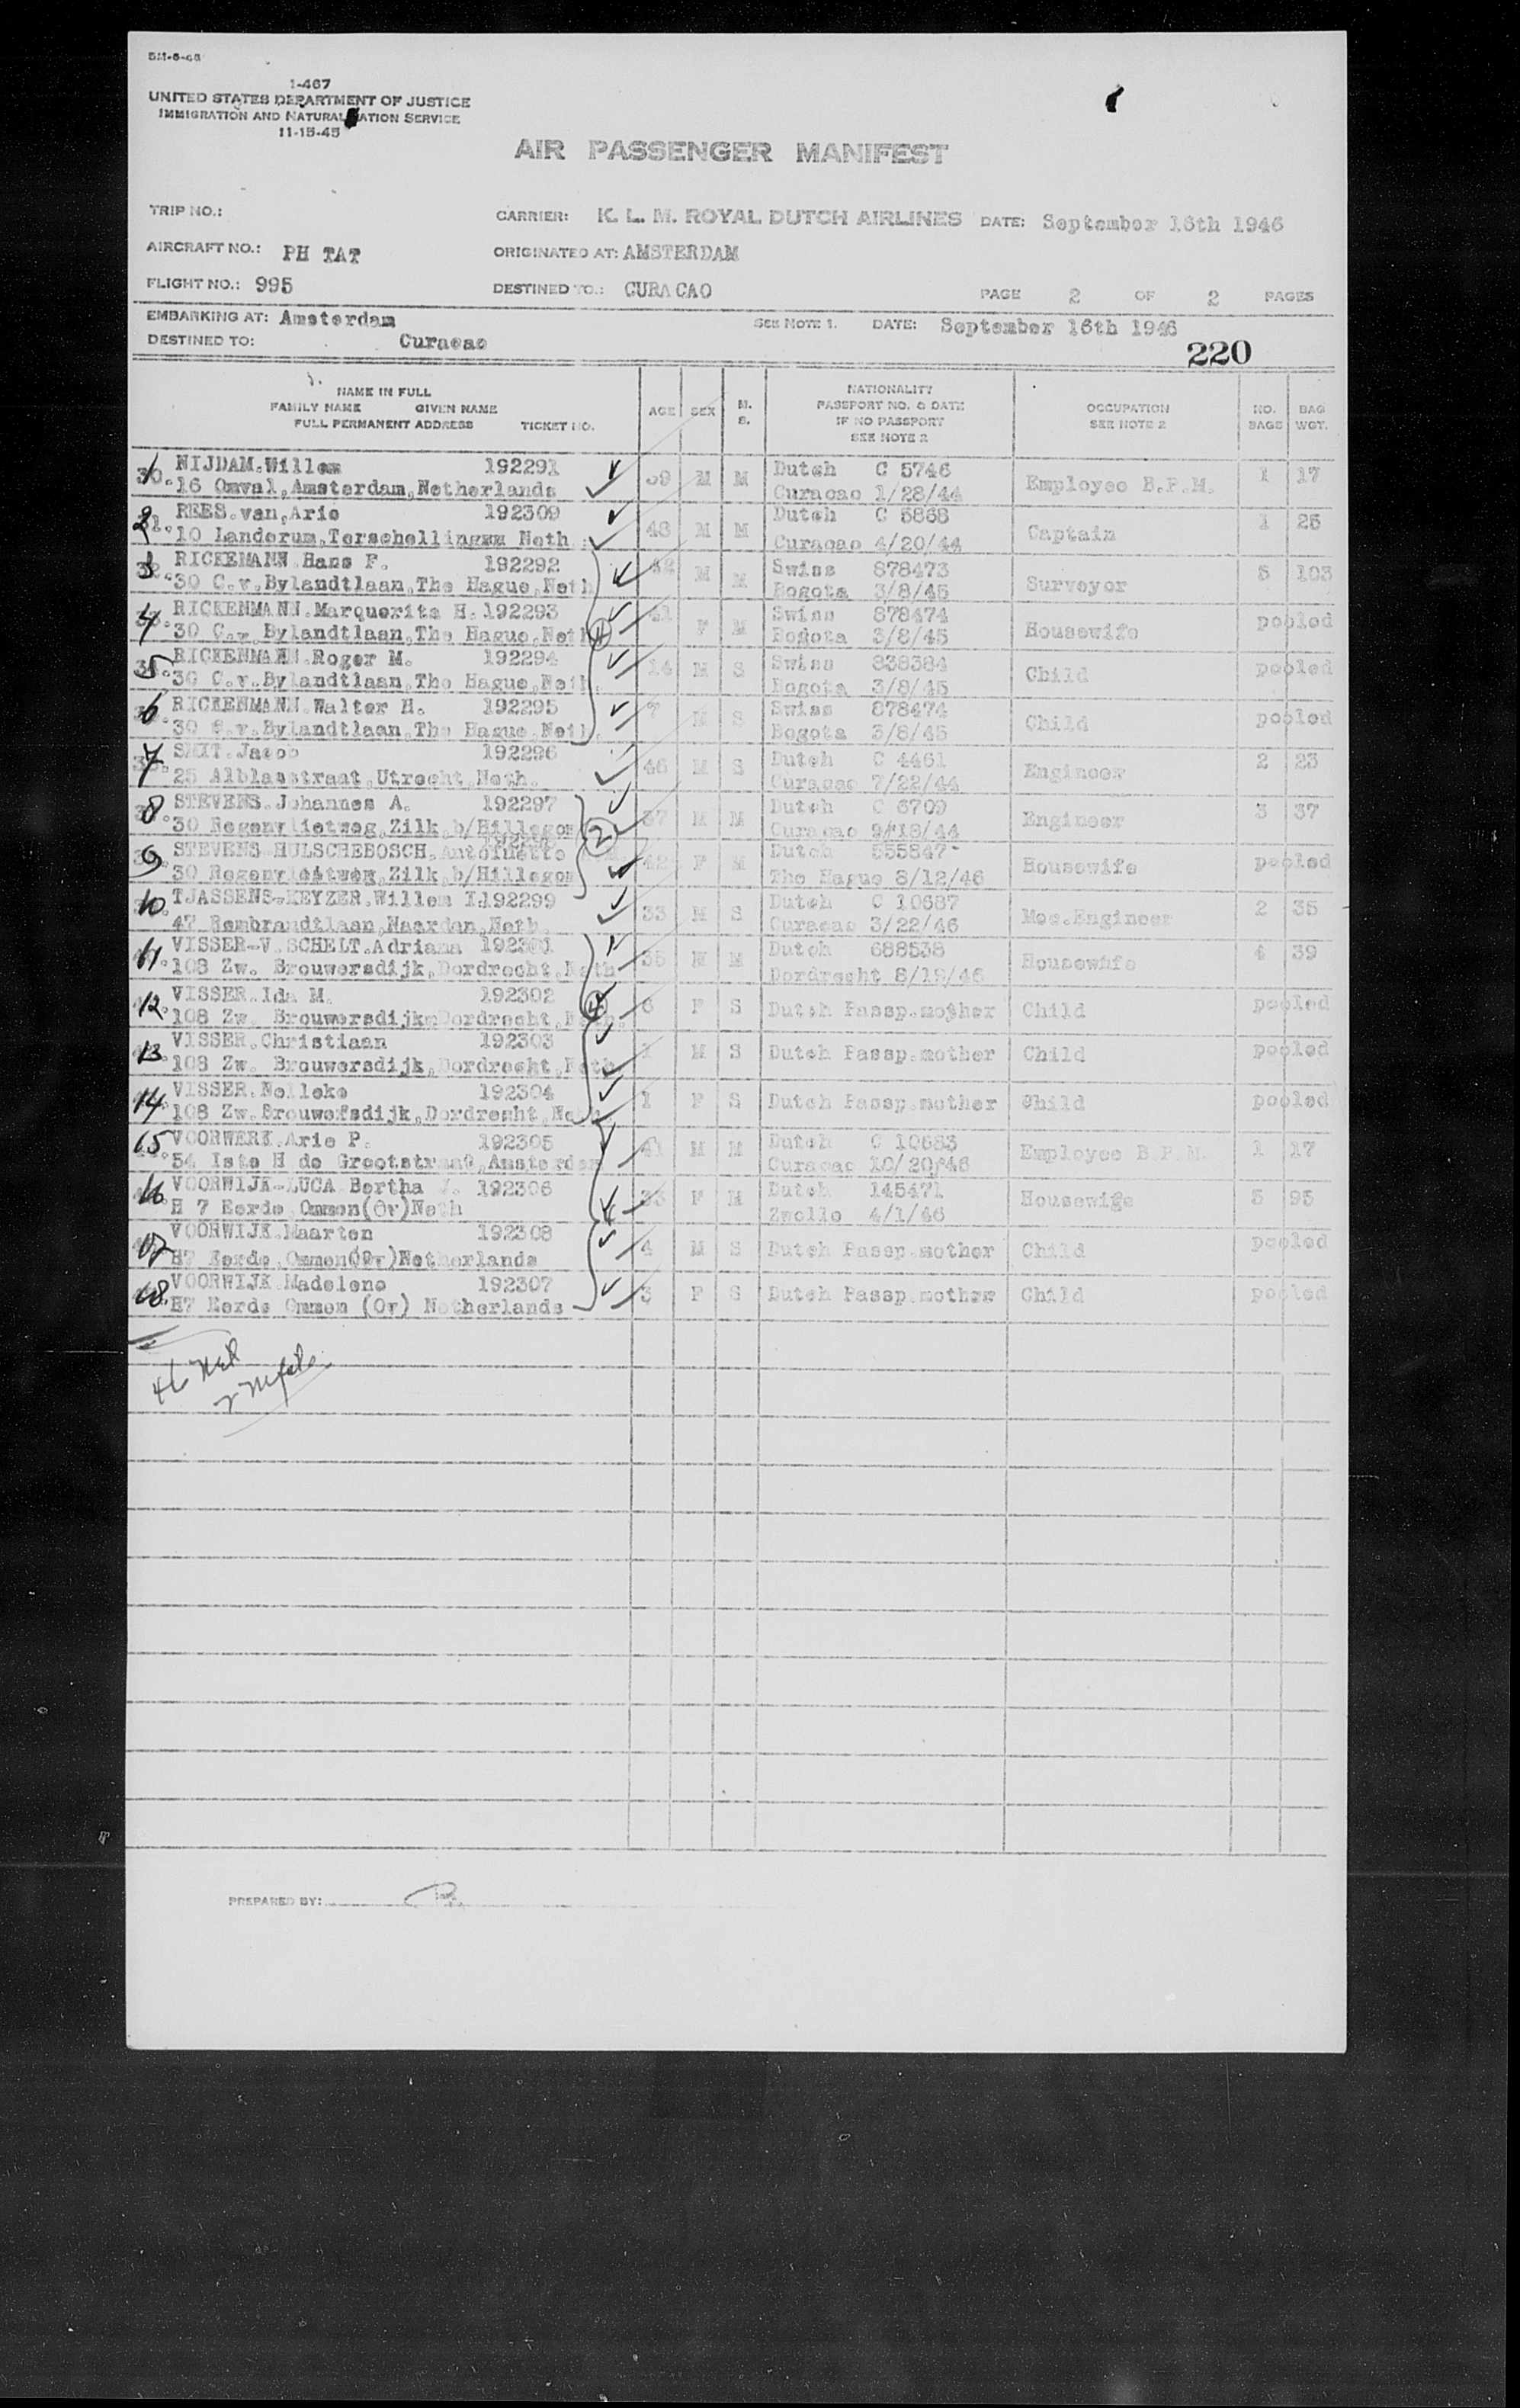 1-467
UNITED STATES DEPARTMENT OF JUSTICE
IMMIGRATION AND NATURALIZATION SERVICE
11-15-45
AIR PASSENGER MANIFEST
TRIP NO.:
CARRIER: K. L. M. ROYAL DUTCH AIRLINES DATE: September 16th 1946
AIRCRAFT NO.: PH TAT ORIGINATED AT: AMSTERDAM
FLIGHT NO.: 995 DESTINED TO.: CURACAO PAGE 2 OF 2 PAGES
EMBARKING AT: Amsterdam SEE NOTE 1. DATE: September 16th 1946
DESTINED TO: Curacao
220
NAME IN FULL
FAMILY NAME GIVEN NAME
FULL PERMANENT ADDRESS TICKET NO.
AGE SEX M. S.
NATIONALITY
PASSPORT NO. & DATE
IF NO PASSPORT
SEE NOTE 2
OCCUPATION
SEE NOTE 2
NO. BAGS
BAG WGT.
1 NIJDAM.Willem 192291 39 M M Dutch C 5746 Employee B.P.M. 1 17
16 Omval,Amsterdam,Netherlands Curacao 1/28/44
2 REES.van,Arie 192309 48 M M Dutch C 5868 Captain 1 25
10 Landerum,Terschelling Neth Curacao 4/20/44
3 RICKEMANN Hans F. 192292 42 M M Swiss 878473 Surveyor 5 103
30 C.v.Bylandtlaan,The Hague,Neth Bogota 3/8/45
4 RICKENMANN.Marquerite H. 192293 41 F M Swiss 878474 Housewife pooled
30 C.v.Bylandtlaan,The Hague,Neth Bogota 3/8/45
4
5 RICKENMANN.Roger M. 192294 14 M S Swiss 838384 Child pooled
30 C.v.Bylandtlaan,The Hague,Neth. Bogota 3/8/45
6 RICKENMANN Walter H. 192295 7 M S Swiss 878474 Child pooled
30 C.v.Bylandtlaan,The Hague,Neth. Bogota 3/8/45
7 SMIT.Jacob 192296 46 M S Dutch C 4461 Engineer 2 23
25 Alblasstraat,Utrecht,Neth. Curacao 7/22/44
8 STEVENS.Johannes A. 192297 37 M M Dutch C 6709 Engineer 3 37
30 Regenvlietweg,Zilk,b/Hillegom Curacao 9/18/44
2
9 STEVENS HULSCHEBOSCH.Antoinette 42 F M Dutch 555847 Housewife pooled
30 Zilk,b/Hillegom The Hague 8/12/46
10 TJASSENS-KEYZER.Willem I.192299 33 M S Dutch C 10687 Mec.Engineer 2 35
47 Rembrandtlaan,Naarden,Neth. Curacao 3/22/46
11 VISSER-V.SCHELT.Adriana 192301 35 M Dutch 688538 Housewife 4 39
108 Zw. Brouwersdijk,Dordrecht,Neth Dordrecht 8/19/46
12 VISSER.Ida M. 192302 6 F S Dutch Passp.mother Child pooled
108 Zw. Brouwersdijk,Dordrecht,Neth.
4
13 VISSER.Christiaan 192303 1 M S Dutch Passp.mother Child pooled
108 Zw. Brouwersdijk,Dordrecht,Neth
14 VISSER.Nelleke 192304 1 F S Dutch Passp.mother Child pooled
108 Zw.Brouwersdijk,Dordrecht,Neth
15 VOORWERK.Arie P. 192305 41 M M Dutch C 10683 Employee B.P.M. 1 17
54 Iste H de Grootstraat,Amsterdam Curacao 10/20/46
16 VOORWIJK-LUCA Bertha 192306 33 F M Dutch 145471 Housewife 5 95
H 7 Eerde Ommen(Ov)Neth Zwolle 4/1/46
17 VOORWIJK.Maarten 192308 4 M S Dutch Passp.mother Child pooled
H7 Eerde Ommen(Ov)Netherlands
18 VOORWIJK Madelene 192307 3 F S Dutch Passp.mother Child pooled
H7 Eerde Ommen (Ov) Netherlands
PREPARED BY: